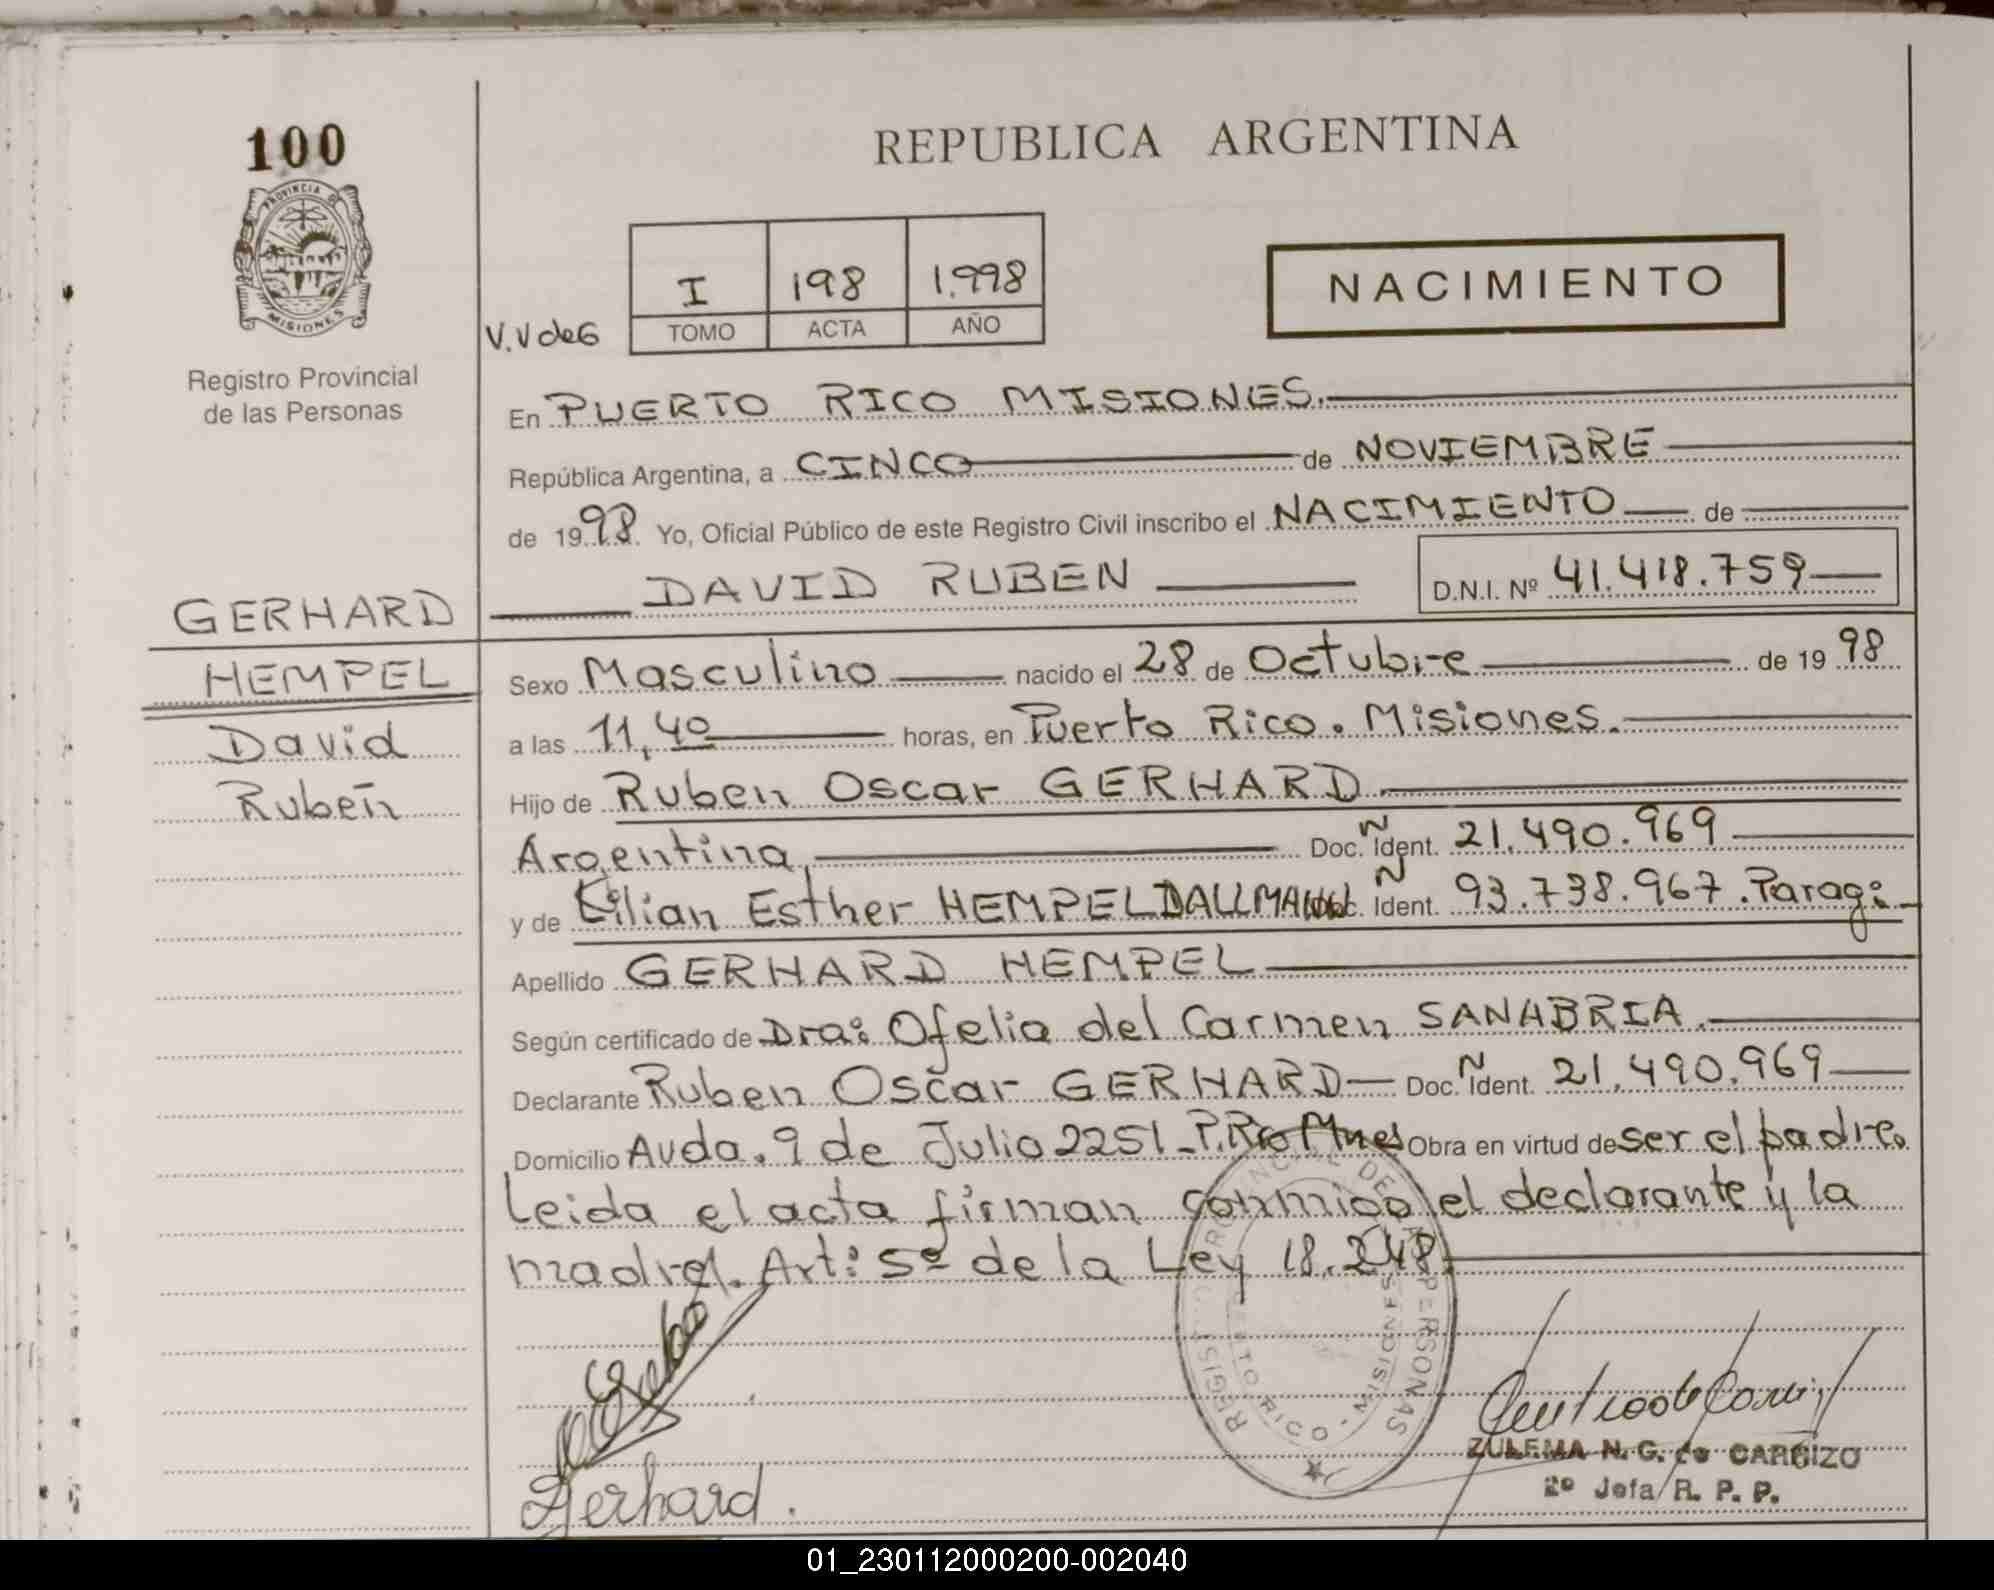 100
PROVINCIA D
MISIONES
Registro Provincial
de las Personas
GERHARD
HEMPEL
David
Rubén
REPUBLICA ARGENTINA
V.V de G
I 198 1.998
TOMO ACTA AÑO
NACIMIENTO
En PUERTO RICO MISIONES.
República Argentina, a CINCO de NOVIEMBRE
de 1998. Yo, Oficial Público de este Registro Civil inscribo el NACIMIENTO de
DAVID RUBEN D.N.I. Nº 41.418.759
Sexo Masculino nacido el 28 de Octubre de 19 98
a las 11,40 horas, en Puerto Rico. Misiones.
Hijo de Ruben Oscar GERHARD
Argentina, Doc. Ñ Ident. 21.490.969
y de Lilian Esther HEMPEL DALLMANN Doc. Ñ Ident. 93.738.967. Parag:
Apellido GERHARD HEMPEL
Según certificado de Dra: Ofelia del Carmen SANABRIA.
Declarante Ruben Oscar GERHARD Doc. Ñ Ident. 21.490.969
Domicilio Avda. 9 de Julio 2251 - P. Rco Mnes Obra en virtud de ser el padre.
Leida el acta firman conmigo el declarante y la
madre. Art: 5º de la Ley 18.248.
REGISTRO PROVINCIAL DE LAS PERSONAS
PUERTO RICO - MISIONES
Gerhard.
ZULEMA N. G. de CARRIZO
2º Jefa/R. P. P.
01_230112000200-002040